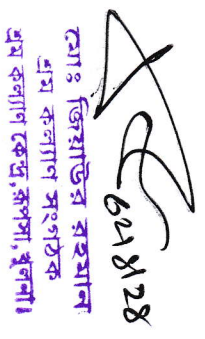 মোঃ জিয়াউর রহমান
শ্রম কল্যান সংগঠক
শ্রম কল্যান কেন্দ্র, রূপসা, খুলনা।